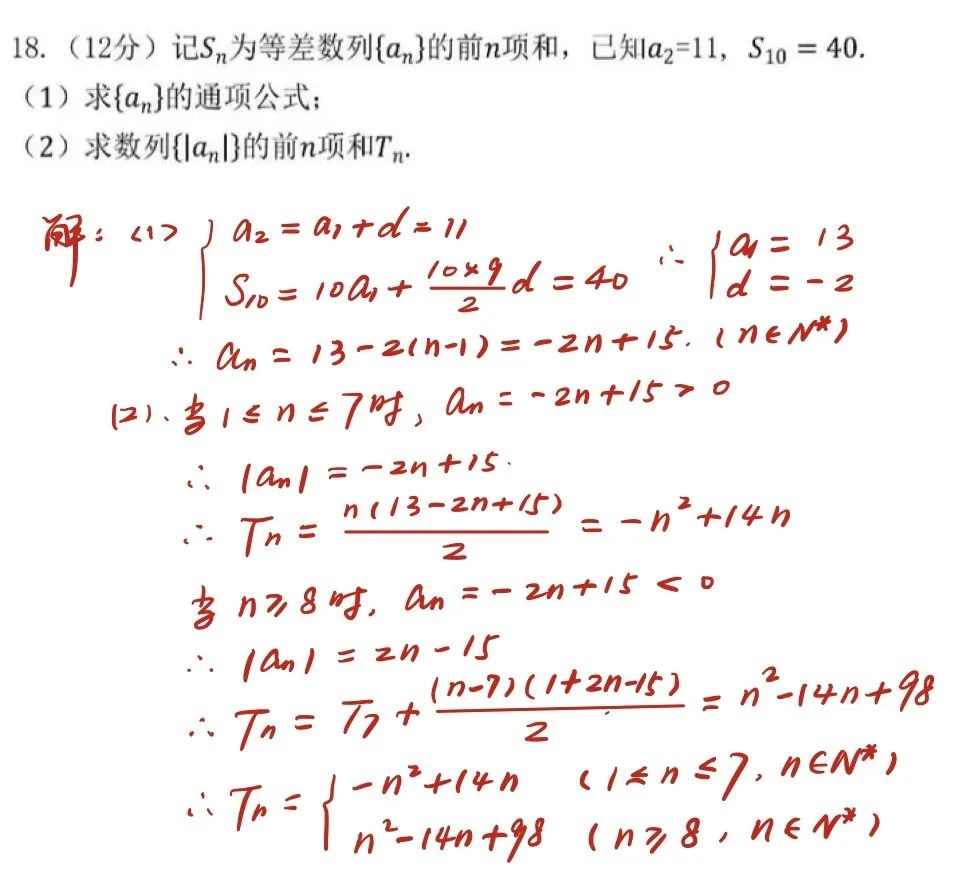 18.（12分）记Sₙ为等差数列{aₙ}的前n项和，已知a₂=11，S₁₀ = 40.
（1）求{aₙ}的通项公式；
（2）求数列{|aₙ|}的前n项和Tₙ.
解：(1) { a₂ = a₁ + d = 11
S₁₀ = 10a₁ + (10×9)/2 d = 40 ∴ { a₁ = 13
d = -2
∴ aₙ = 13 - 2(n-1) = -2n + 15. (n∈N*)
(2). 当 1 ≤ n ≤ 7时, aₙ = -2n + 15 > 0
∴ |aₙ| = -2n + 15.
∴ Tₙ = n(13-2n+15)/2 = -n² + 14n
当 n ≥ 8时, aₙ = -2n + 15 < 0
∴ |aₙ| = 2n - 15
∴ Tₙ = T₇ + (n-7)(1+2n-15)/2 = n² - 14n + 98
∴ Tₙ = { -n² + 14n (1 ≤ n ≤ 7, n∈N*)
n² - 14n + 98 (n ≥ 8, n∈N*)